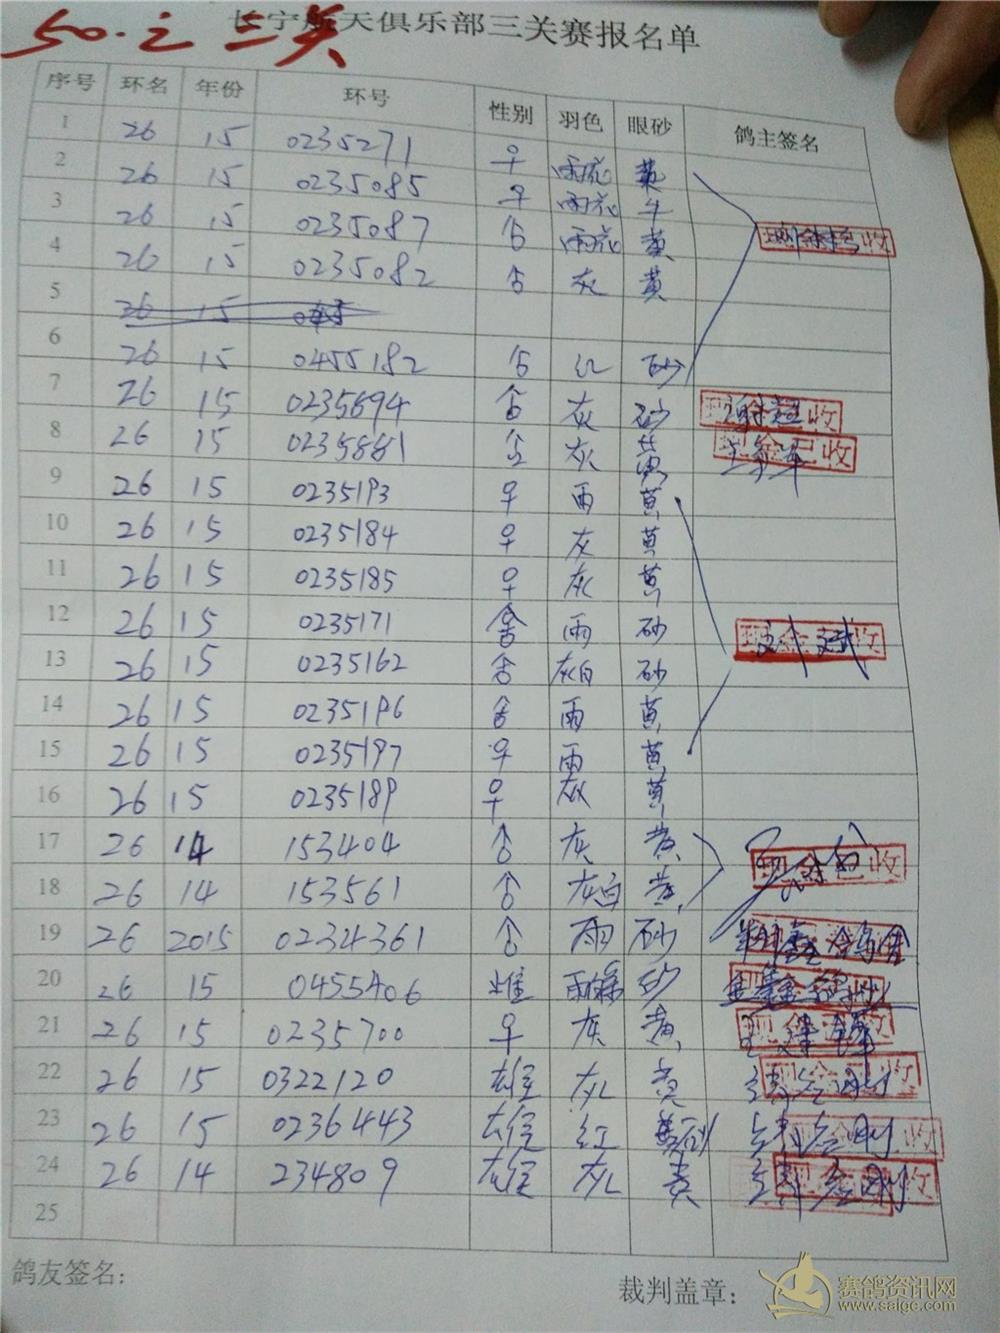 50.之三关
长宁航天俱乐部三关赛报名单
序号 环名 年份 环号 性别 羽色 眼砂 鸽主签名
1 26 15 0235271 ♀ 雨花 黄
2 26 15 0235085 ♀ 雨花 牛
3 26 15 0235087 雨花 黄
4 26 15 0235082 灰 黄
5 26 15
6 26 15 0455182 红 砂
7 26 15 0235694 灰 砂 收
8 26 15 0235881 灰 黄 收
9 26 15 0235193 ♀ 雨 黄
10 26 15 0235184 ♀ 灰 黄
11 26 15 0235185 ♀ 灰 黄
12 26 15 0235171 雨 砂
13 26 15 0235162 灰白 砂
14 26 15 0235196 雨 黄
15 26 15 0235197 ♀ 雨 黄
16 26 15 0235189 ♀ 灰 黄
17 26 14 153404 灰 黄 收
18 26 14 153561 灰白 黄
19 26 2015 0234361 雨 砂
20 26 15 0455406 雌 砂
21 26 15 0235700 ♀ 灰 黄
22 26 15 0322120 雄 灰 黄 收
23 26 15 0236443 雄 红 黄砂 收
24 26 14 234809 雄 灰 黄 收
25
鸽友签名:
裁判盖章:
赛鸽资讯网
www.saige.com